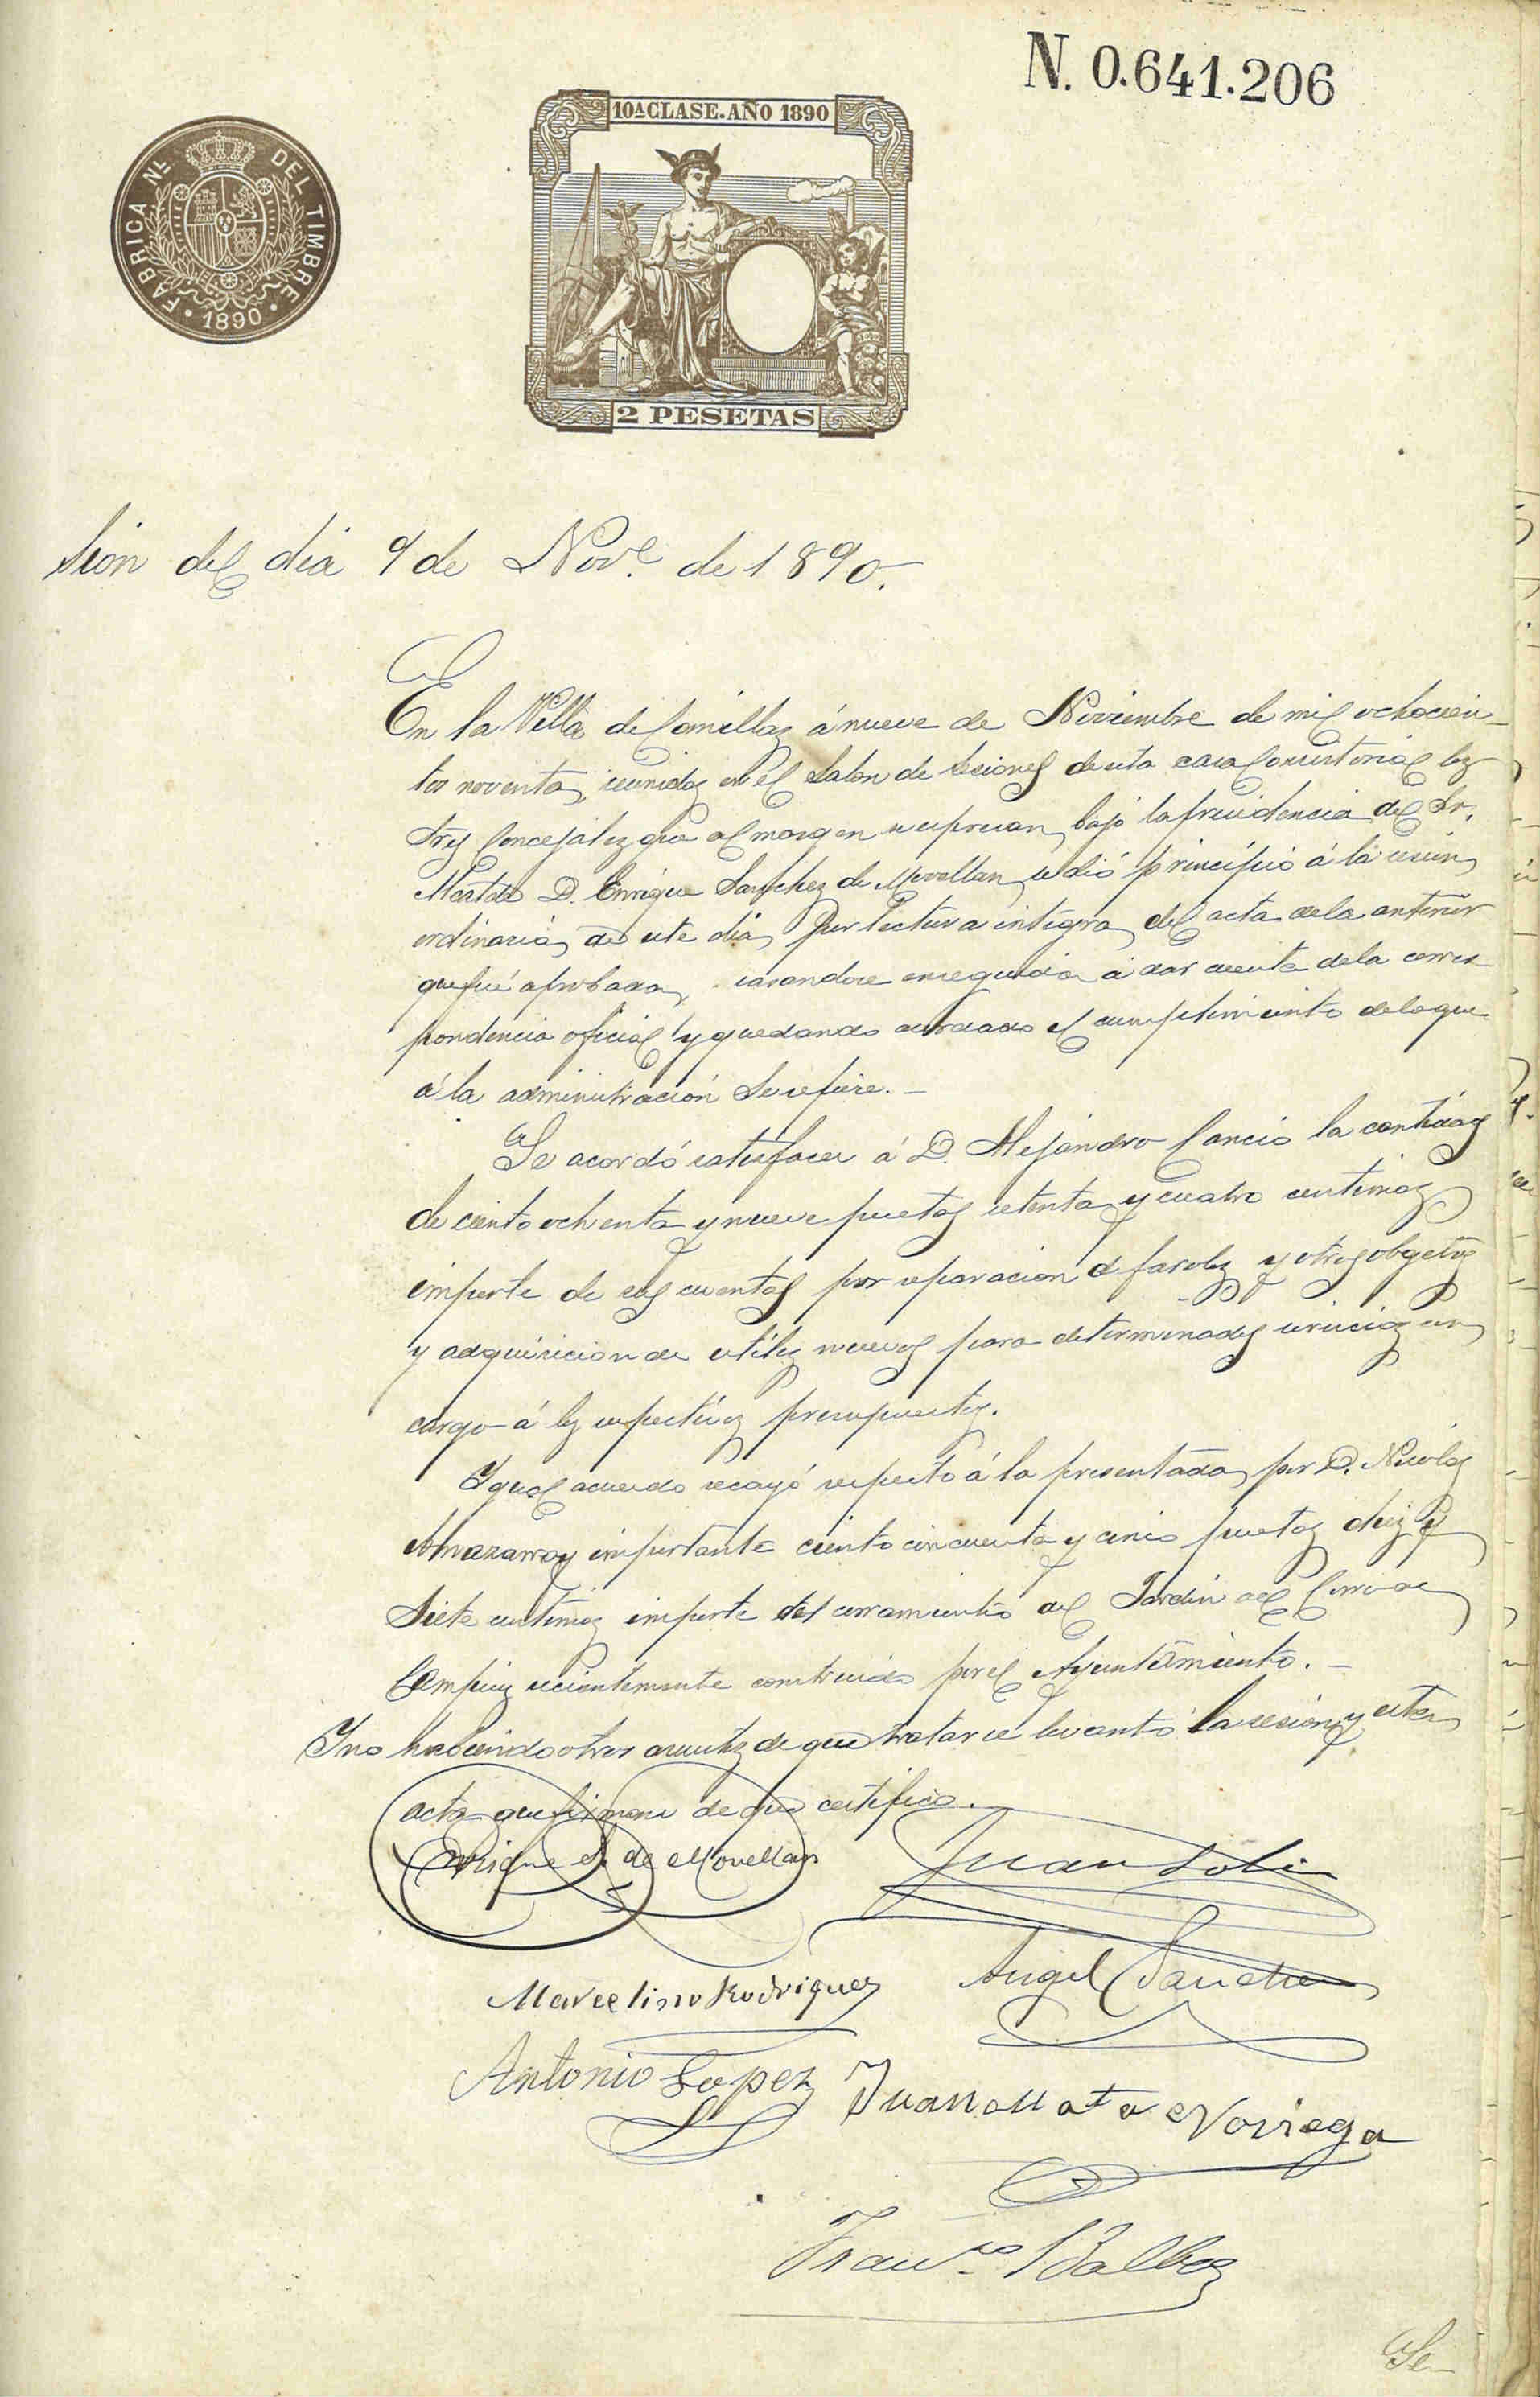 N. 0.641.206
10ª CLASE. AÑO 1890
FABRICA Nᴸ DEL TIMBRE
1890
2 PESETAS
Sión del dia 9 de Nov.e de 1890.
En la Villa de Comillas á nueve de Noviembre de mil ochocien-
tos noventa, reunidos en el Salon de Sesiones de esta casa Consistorial los
Sres Concejales que al margen se espresan, bajo la presidencia del Sr.
Alcalde D. Enrique Sanchez de Movellan, se dió principio á la sesion
ordinaria de este dia, por lectura integra del acta de la anterior
que fué aprobada, pasandose enseguida á dar cuenta de la corres-
pondencia oficial y quedando acordado el cumplimiento de lo que
á la administración se refiere. –
Se acordó satisfacer á D. Alejandro Cancio la cantidad
de ciento ochenta y nueve pesetas setenta y cuatro centimos
importe de sus cuentas por reparacion de faroles y otros objetos
y adquisicion de utiles nuevos para determinados servicios con
cargo á los respectivos presupuestos.
Igual acuerdo recayó respecto á la presentada por D. Nicolas
importante ciento cincuenta y cinco pesetas diez y
siete centimos importe del cerramiento del Jardin del Corro de
Campios recientemente construido por el Ayuntamiento. –
Y no habiendo otros asuntos de que tratar se levantó la sesion y esta
acta que firman de que certifico.
Enrique S. de Movellan
Juan
Marcelino Rodriguez
Angel Sanchez
Antonio Lopez
Juan Mata Noriega
Franco Balbas
Se